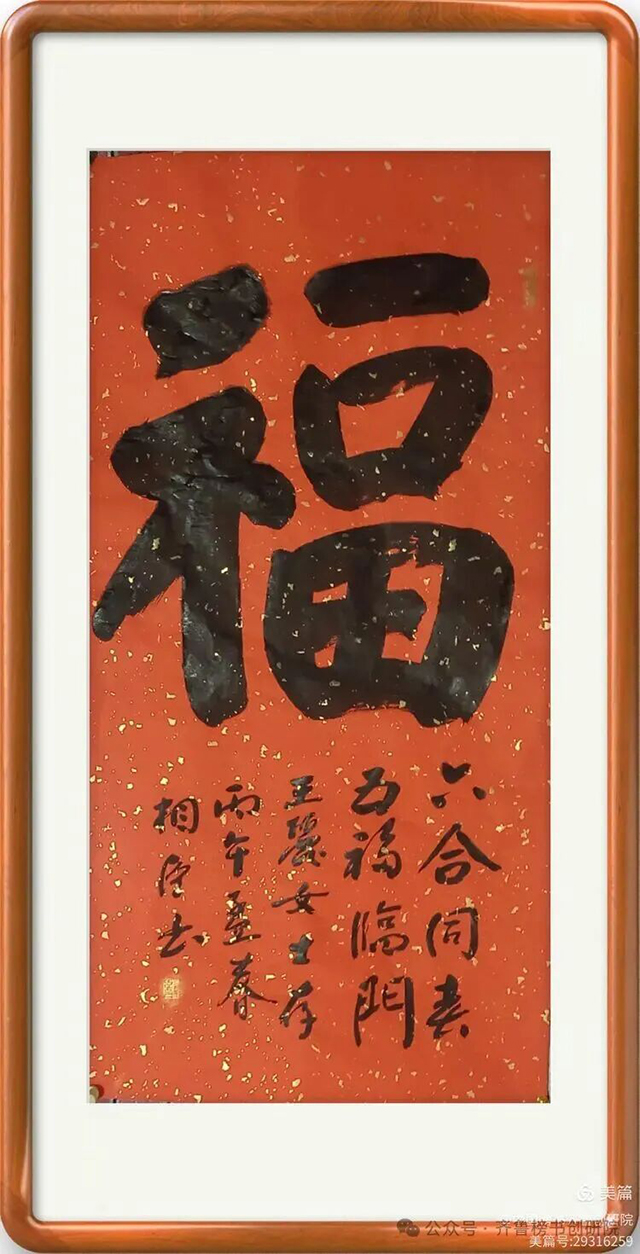 福
六合同春
五福臨門
王麗女士存
丙午孟春
相 书
美篇
研院
公众号 · 齐鲁榜书创研院
美篇号:29316259